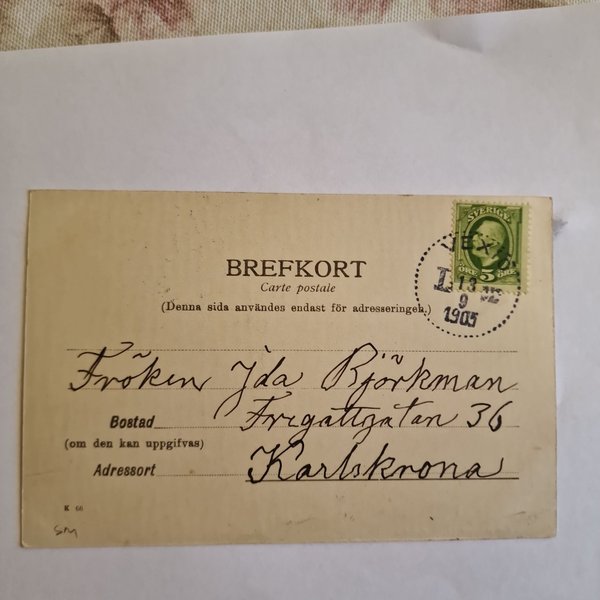 SVERIGE
ÖRE 5 ÖRE
VEXIÖ
13
9
1903
BREFKORT
Carte postale
(Denna sida användes endast för adresseringen.)
Fröken Ida Björkman
Bostad Fregattgatan 36
(om den kan uppgifvas)
Adressort Karlskrona
K 66